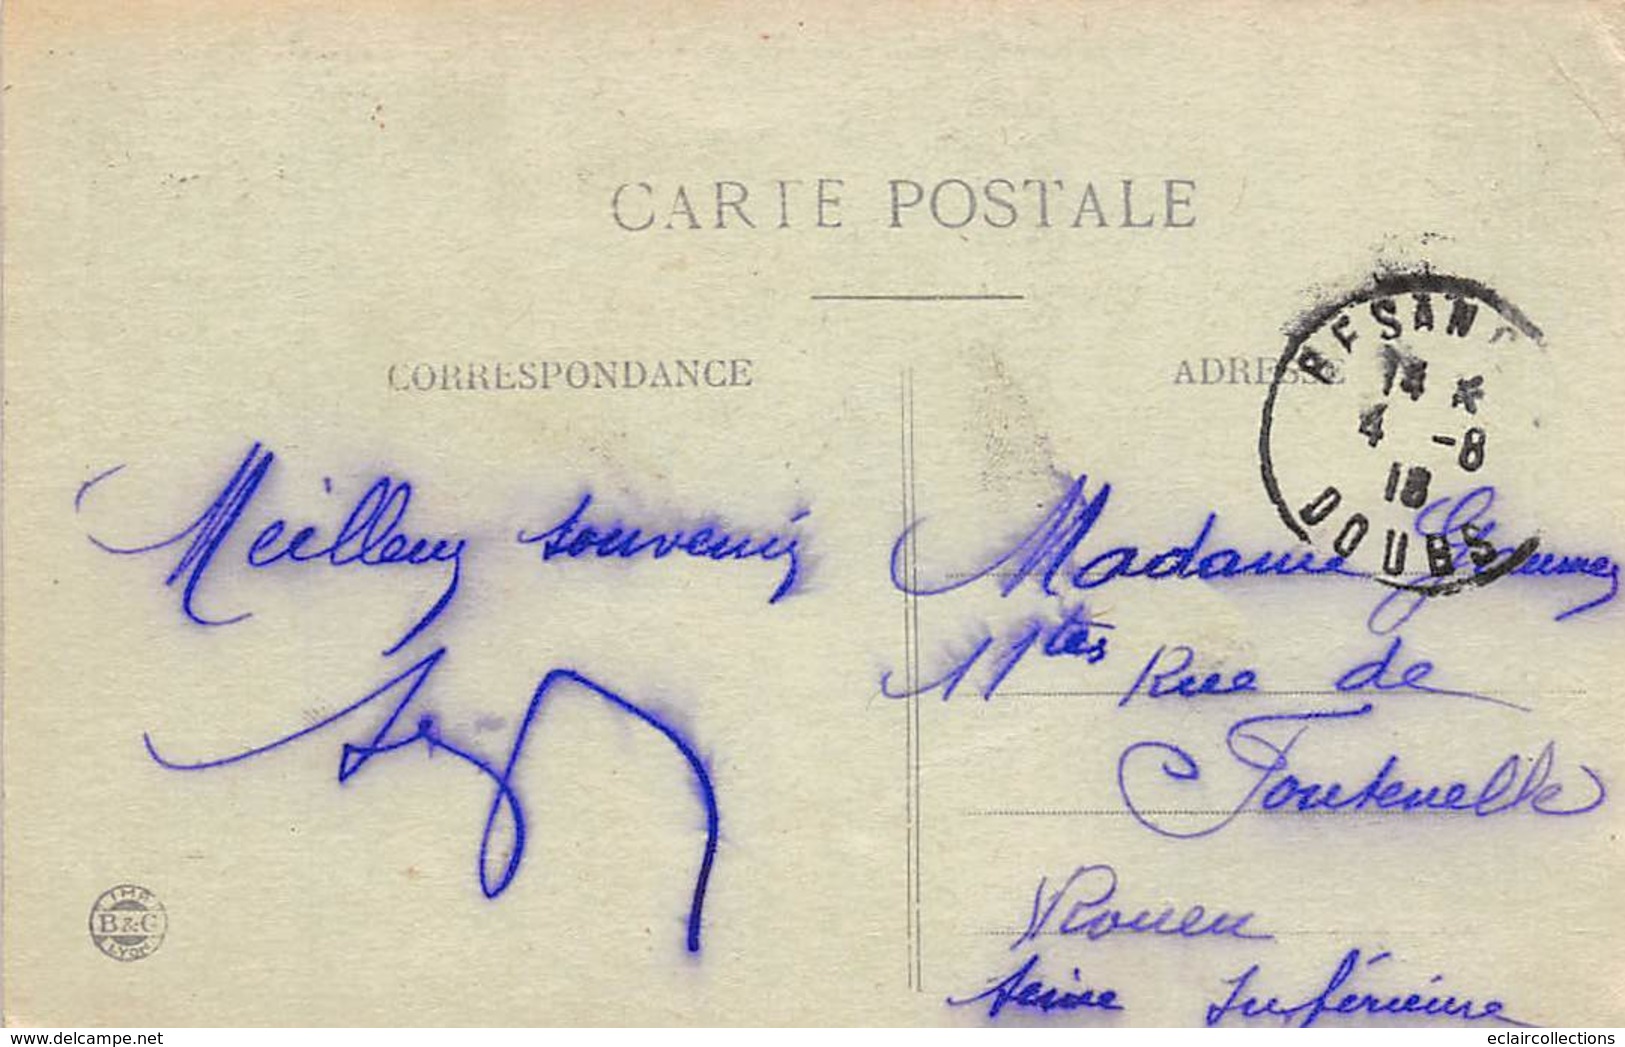 CARTE POSTALE
CORRESPONDANCE
ADRESSE
BESANÇ
14 *
4 -8
18
DOUBS
Meilleurs souvenirs
Madame
11 tes Rue de
Fontenelle
Rouen
Seine Inférieure
IMP.
B & C
LYON
delcampe.net
eclaircollections